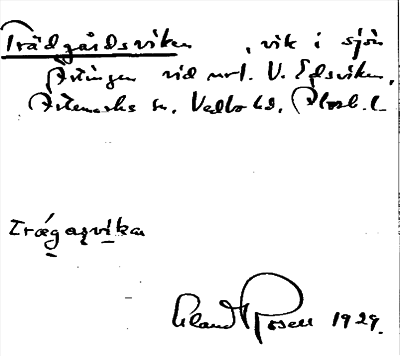 Trädgårdsviken , vik i sjön
Ärtingen vid nrt. V. Edsviken,
Ärtemarks sn, Vedbo hd, Älvsb. l.
Trægaʂvika
Erland Rosell 1929.